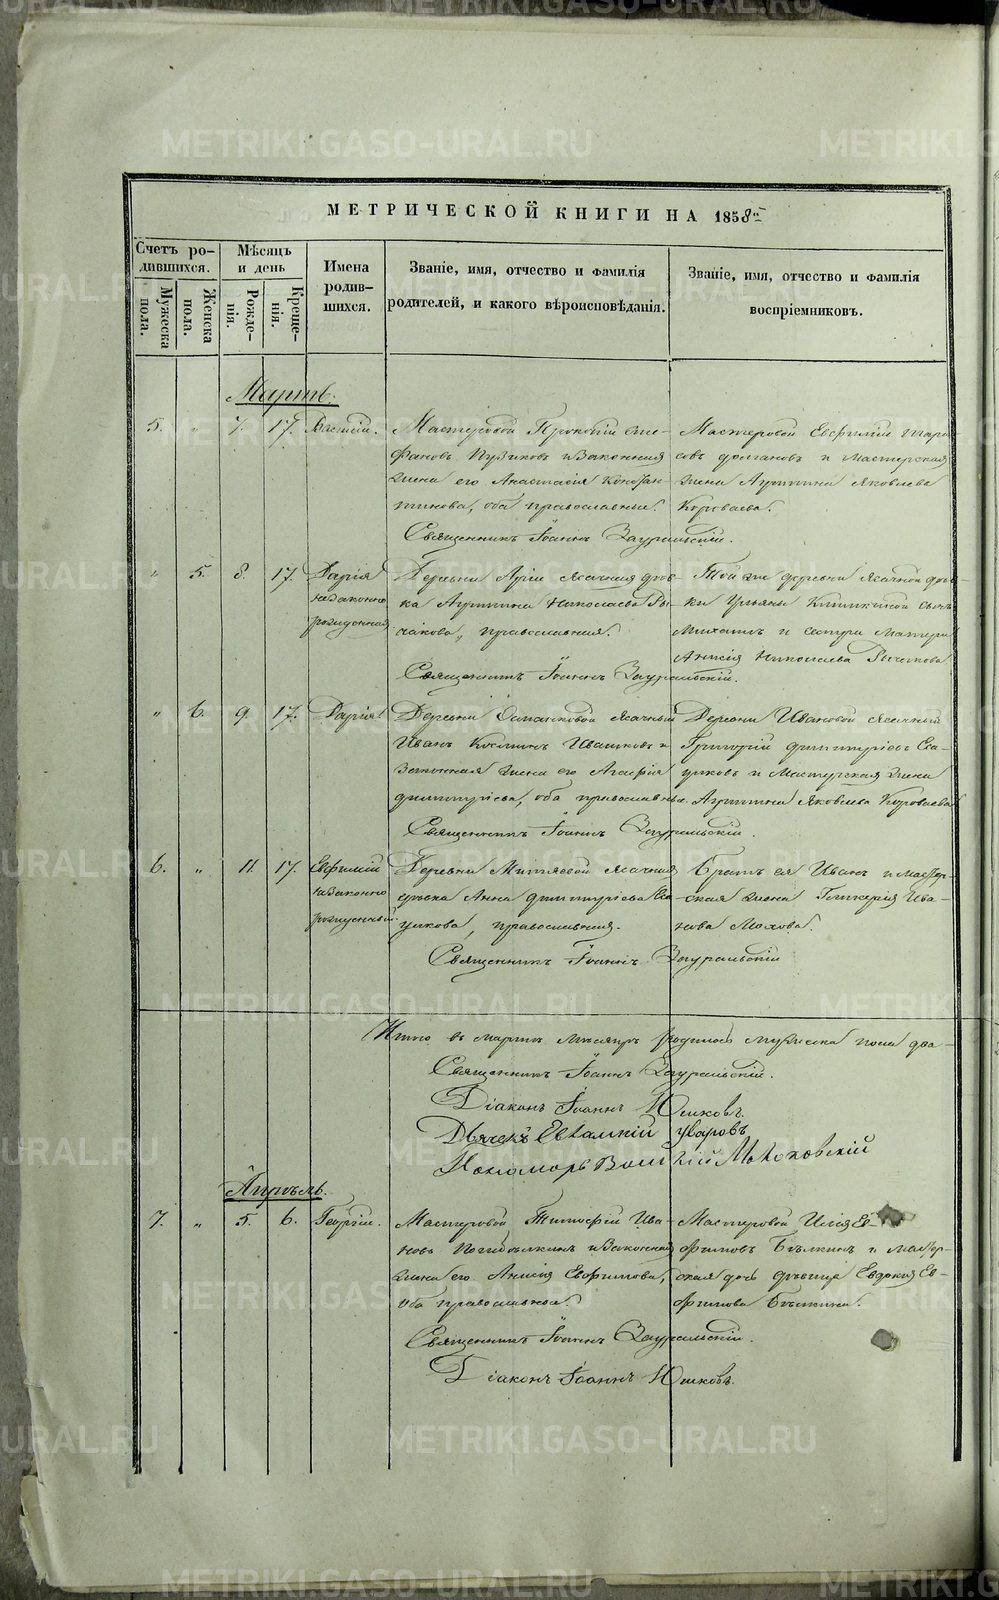 МЕТРИЧЕСКОЙ КНИГИ НА 1858й
Счетъ ро-
дившихся.
Мужеска
пола.
Женска
пола.
Мѣсяцъ
и день
Рожде-
нія.
Креще-
нія.
Имена
родив-
шихся.
Званіе, имя, отчество и фамилія
родителей, и какого вѣроисповѣданія.
Званіе, имя, отчество и фамилія
воспріемниковъ.
Мартъ.
5. „ 7. 17. Василій.
Мастеровой Прокопій Сте-
фановъ и Законная
жена его Анастасія
оба православные.
Священникъ Іоаннъ Зауральскій.
Мастеровой Евфимій Тара-
совъ Долгановъ и Мастерская
жена Агрипина Яковлева
Короваева.
„ 5. 8. 17. Дарія
незаконно
рожденная
Деревни Арія Ясачная дѣв-
ка Агрипина Николаева Ры-
чкова, православная.
Священникъ Іоаннъ Зауральскій.
Той же деревни Ясачной дѣв-
ки Ульяны сынъ
Михаилъ и сестра Матери
Анисія Николаева Рычкова
„ 6. 9. 17. Дарія
Деревни Ясачный
Иванъ Косминъ Ивашковъ и
Законная жена его Агафія
Димитріева, оба православные.
Священникъ Іоаннъ Зауральскій.
Деревни Ивановой Ясачный
Григорій Димитріевъ
и Мастерская жена
Агрипина Яковлева Короваева
6. „ 11. 17. Евфимій
незаконно
рожденный
Деревни Митяевой Ясачная
дѣвка Анна Димитріева
православная.
Священникъ Іоаннъ Зауральскій
Братъ ея Иванъ и Мастер-
ская жена Гликерія Ива-
нова Махова.
Итого въ мартѣ Мѣсяцѣ родилось мужеска пола два
Священникъ Іоаннъ Зауральскій.
Діаконъ Іоаннъ Юшковъ.
Дьячекъ Евлампій Уваровъ
Пономарь
Апрѣль.
7. „ 5. 6. Георгій.
Мастеровой Тимофей Ива-
новъ и Законная
жена его Анисія Евфимова,
оба православные.
Священникъ Іоаннъ Зауральскій.
Діаконъ Іоаннъ Юшковъ.
Мастеровой Илія Ев-
фимовъ Бѣлкинъ и Мастер-
ская дочь дѣвица Евдокія Ев-
фимова Бѣлкина.
METRIKI.GASO-URAL.RU